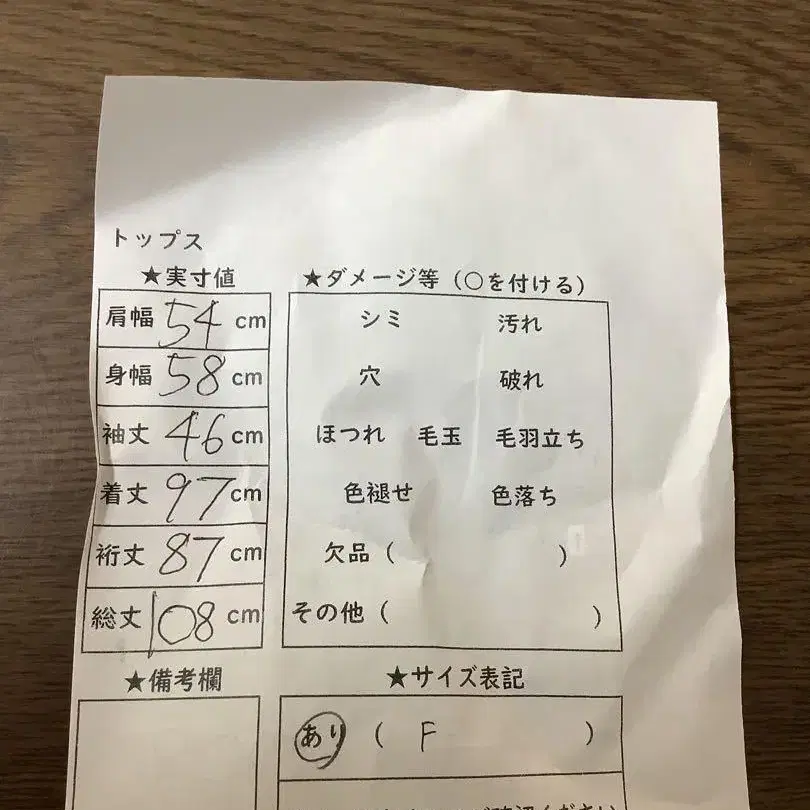 トップス
★実寸値
肩幅 54 cm
身幅 58 cm
袖丈 46 cm
着丈 97 cm
裄丈 87 cm
総丈 108 cm
★備考欄
★ダメージ等（○を付ける）
シミ 汚れ
穴 破れ
ほつれ 毛玉 毛羽立ち
色褪せ 色落ち
欠品（ ）
その他（ ）
★サイズ表記
あり（ F ）